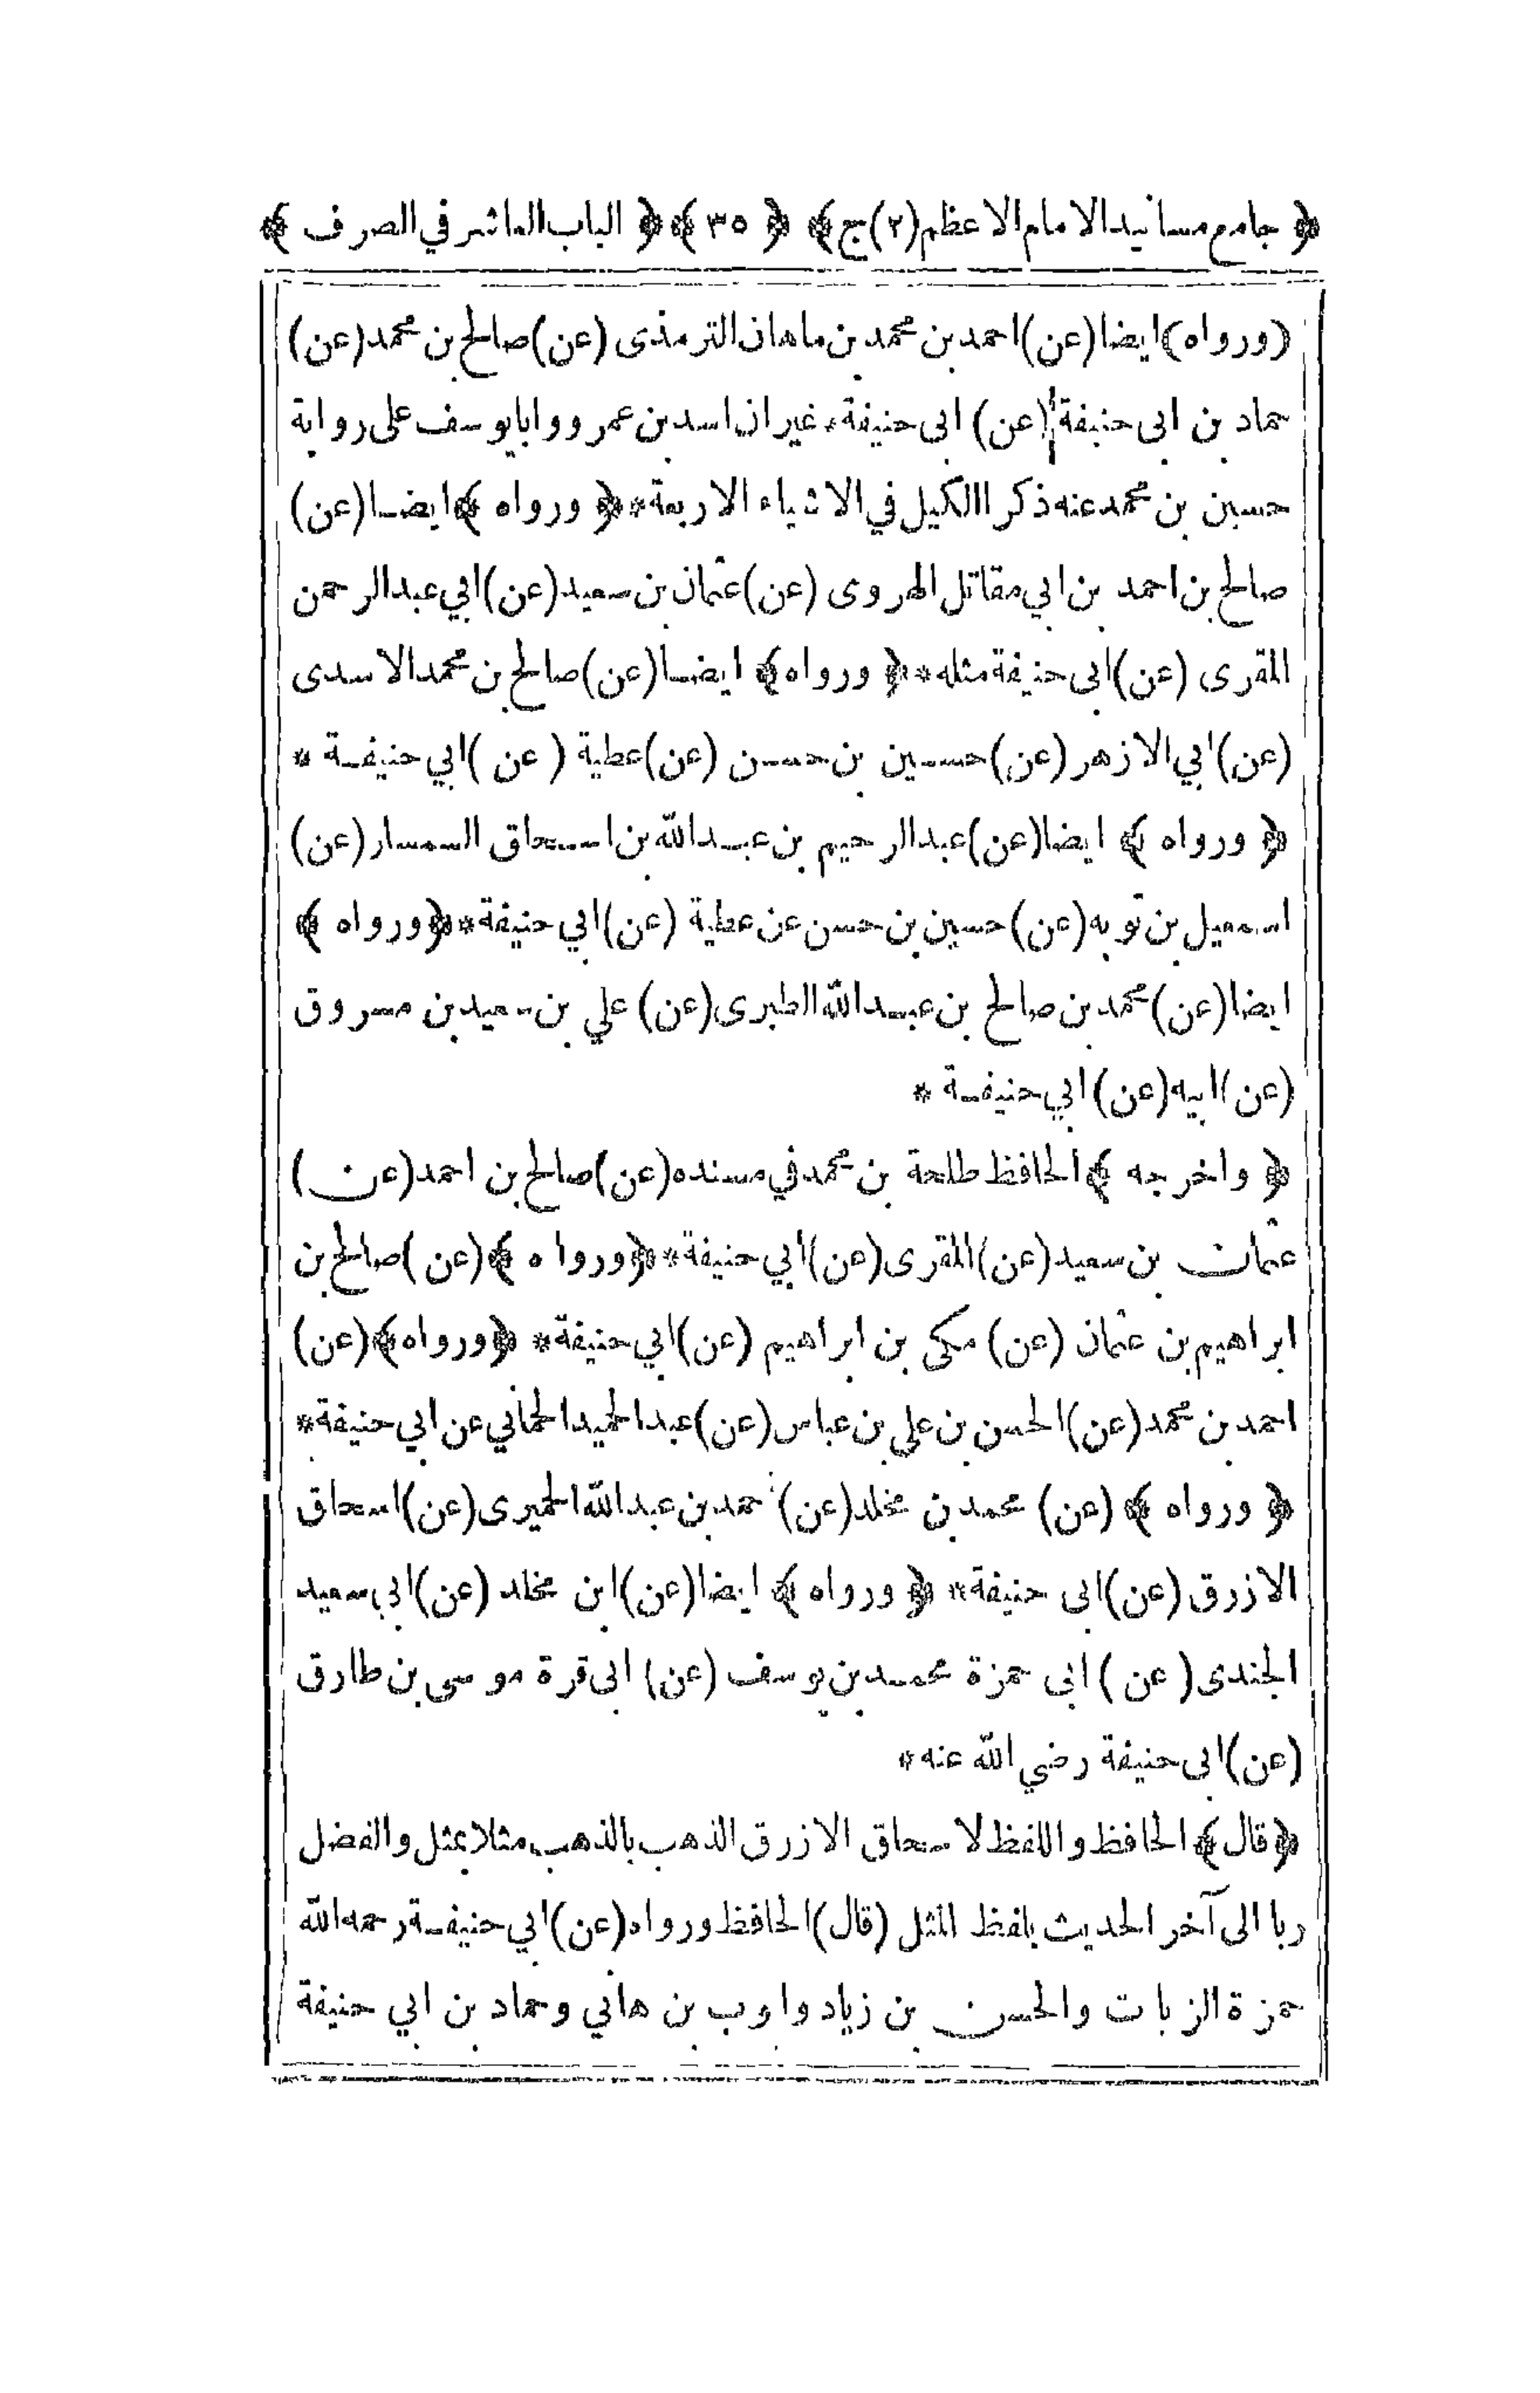 ﴿ جامع مسانيد الامام الاعظم (٢) ج ﴾ ﴿ ٣٥ ﴾ ﴿ الباب العاشر في الصرف ﴾
﴿ ورواه ﴾ ايضا (عن) احمد بن محمد بن ماهان الترمذى (عن) صالح بن محمد (عن)
حماد بن ابى حنيفة (عن) ابى حنيفة * غير ان اسد بن عمرو وابايوسف على رواية
حسين بن محمد عنه ذكر االكيل في الاشياء الاربعة * ﴿ ورواه ﴾ ايضا (عن)
صالح بن احمد بن ابي مقاتل الهروى (عن) عثمان بن سعيد (عن) ابي عبد الرحمن
المقرى (عن) ابى حنيفة مثله * ﴿ ورواه ﴾ ايضا (عن) صالح بن محمد الاسدى
(عن) ابي الازهر (عن) حسين بن حسن (عن) عطية (عن) ابي حنيفة *
﴿ ورواه ﴾ ايضا (عن) عبد الرحيم بن عبد الله بن اسحاق السمسار (عن)
اسمعيل بن توبه (عن) حسين بن حسن عن عطية (عن) ابي حنيفة * ﴿ ورواه ﴾
ايضا (عن) محمد بن صالح بن عبد الله الطبرى (عن) علي بن سعيد بن مسروق
(عن) ابيه (عن) ابي حنيفة *
﴿ واخرجه ﴾ الحافظ طلحة بن محمد في مسنده (عن) صالح بن احمد (عن)
عثمان بن سعيد (عن) المقرى (عن) ابي حنيفة * ﴿ ورواه ﴾ (عن) صالح بن
ابراهيم بن عثمان (عن) مكى بن ابراهيم (عن) ابي حنيفة * ﴿ ورواه ﴾ (عن)
احمد بن محمد (عن) الحسن بن علي بن عباس (عن) عبد الحميد الحماني عن ابي حنيفة *
﴿ ورواه ﴾ (عن) محمد بن مخلد (عن) احمد بن عبد الله الحميرى (عن) اسحاق
الازرق (عن) ابى حنيفة * ﴿ ورواه ﴾ ايضا (عن) ابن مخلد (عن) ابي سعيد
الجندى (عن) ابى حمزة محمد بن يوسف (عن) ابى قرة موسى بن طارق
(عن) ابى حنيفة رضي الله عنه *
﴿ قال ﴾ الحافظ واللفظ لاسحاق الازرق الذهب بالذهب مثلا بمثل والفضل
ربا الى آخر الحديث بلفظ المثل (قال) الحافظ ورواه (عن) ابي حنيفة رحمه الله
حمزة الزيات والحسن بن زياد وايوب بن هاني وحماد بن ابي حنيفة